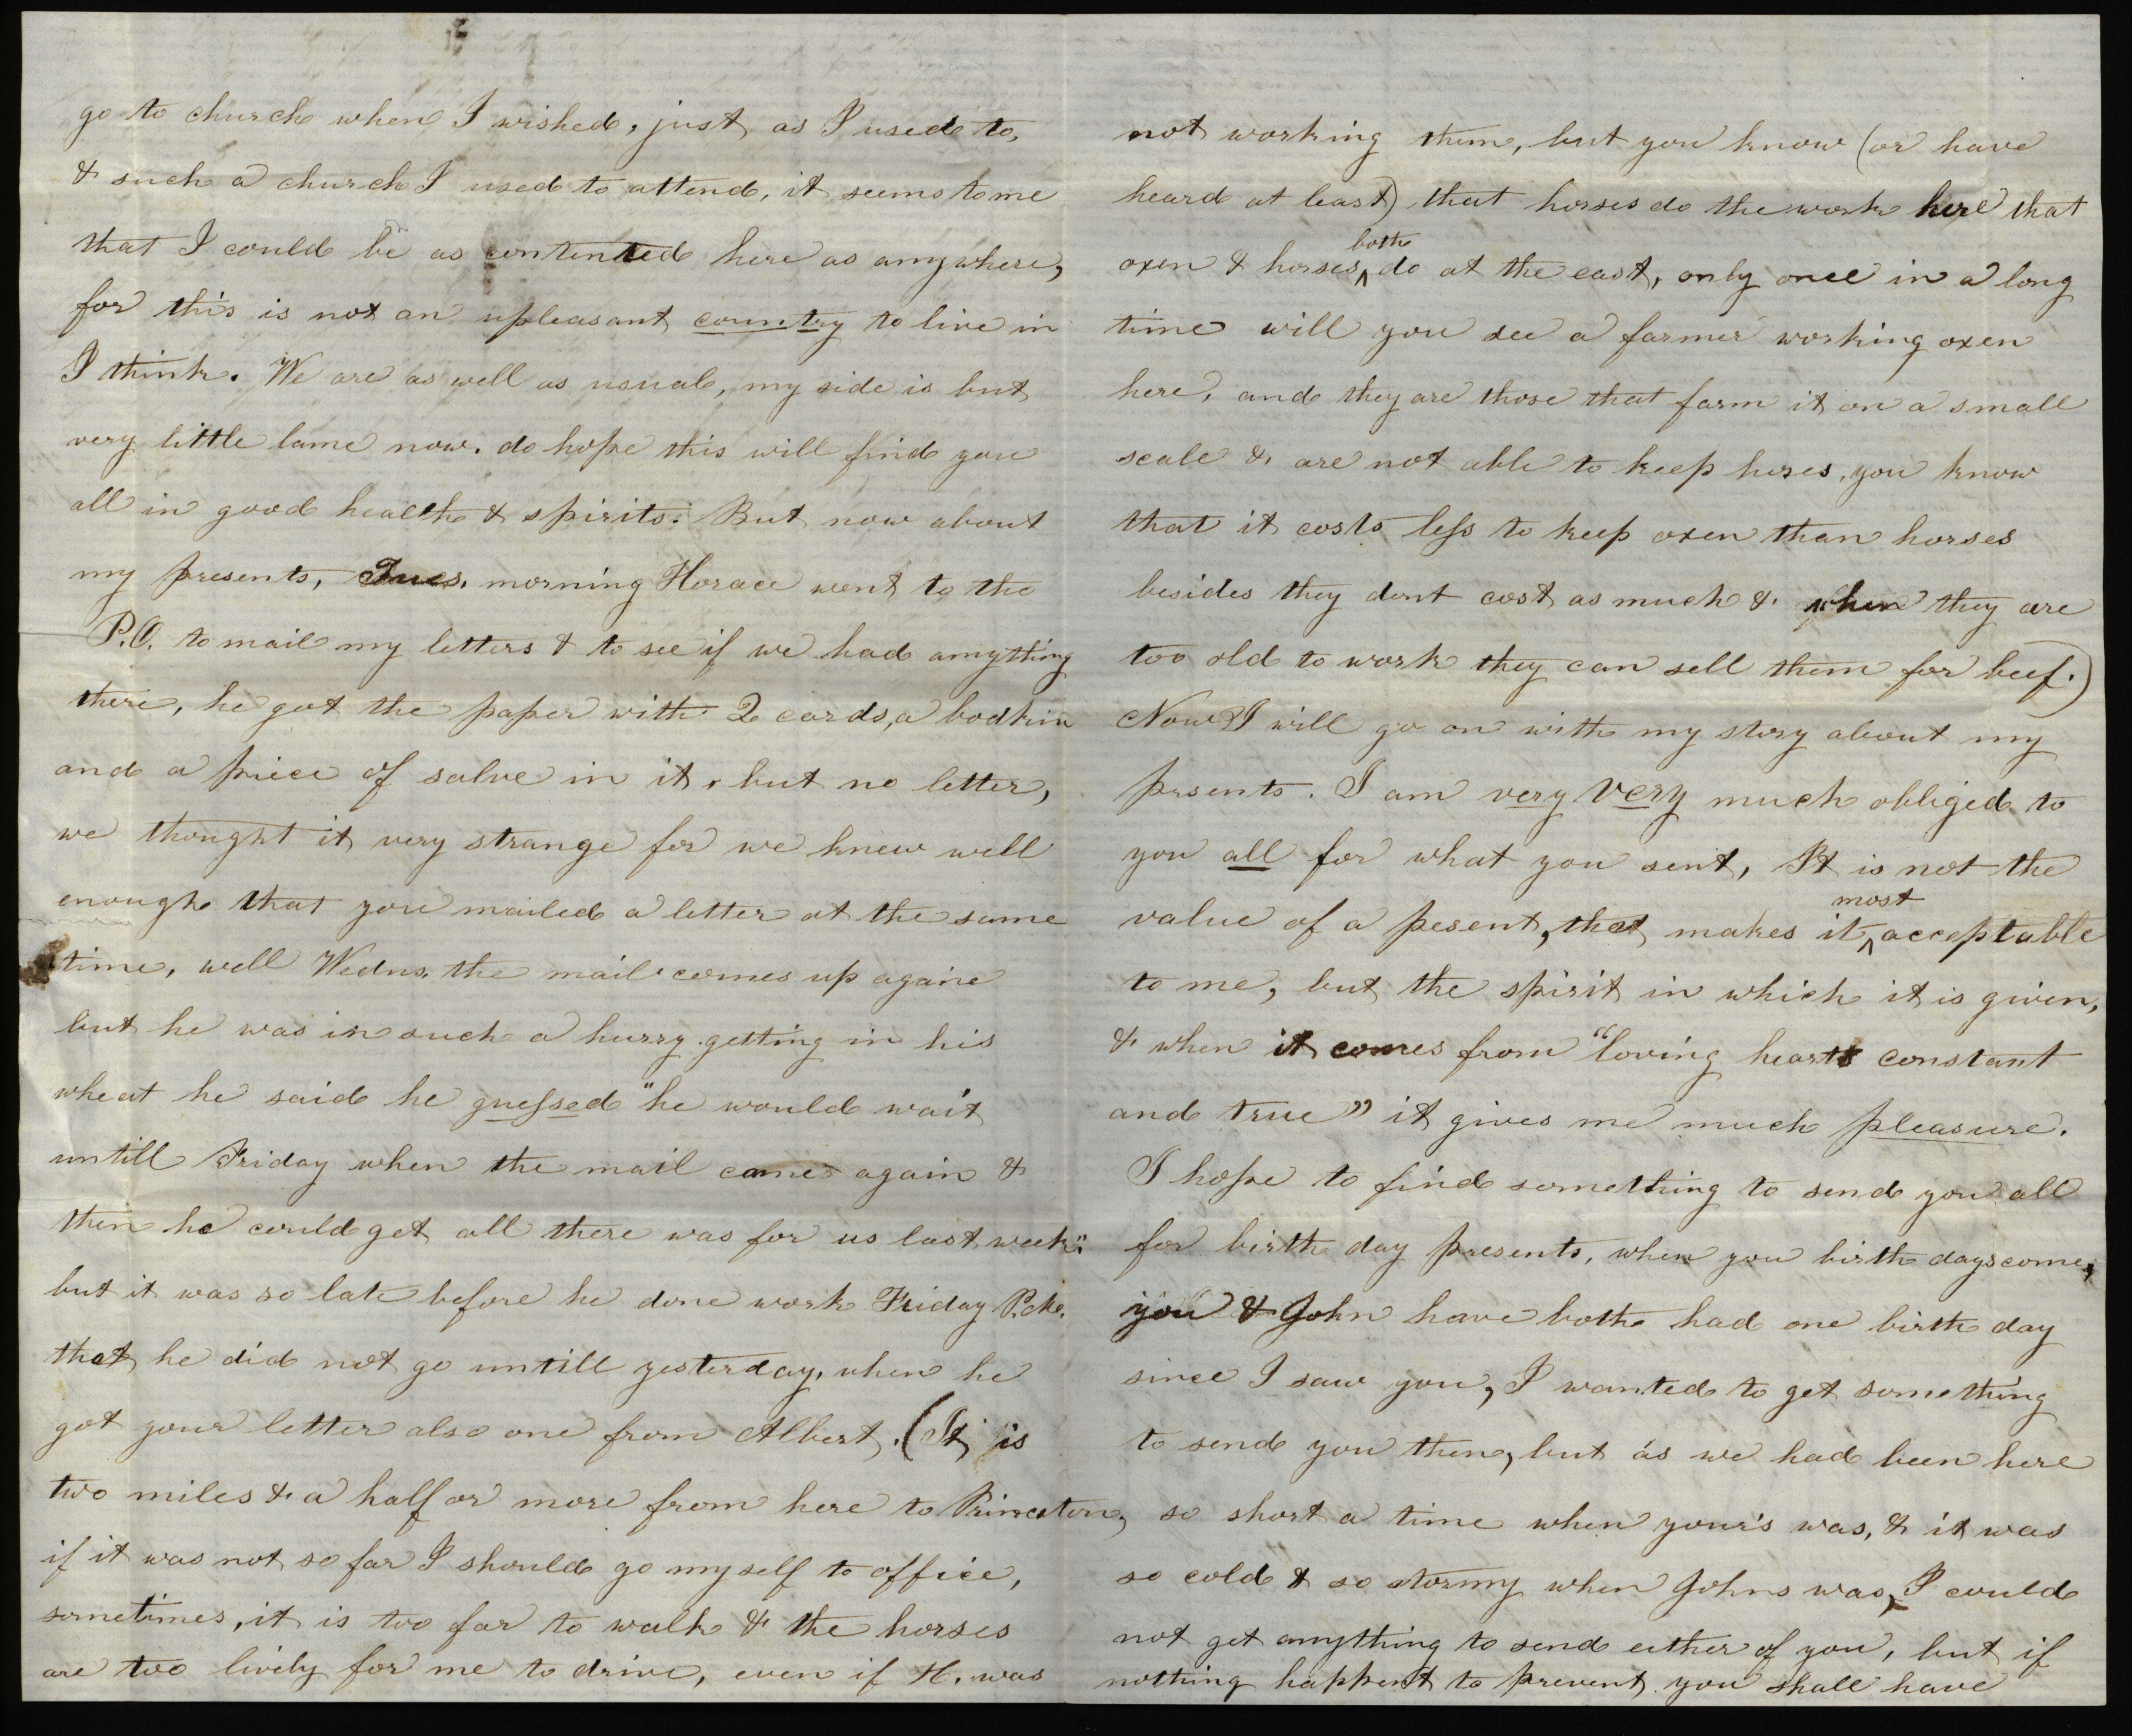 go to church when I wished, just as I used to,
& such a church I used to attend, it seems to me
that I could be as contented here as anywhere,
for this is not an upleasant country to live in
I think. We are as well as usual, my side is but
very little lame now. do hope this will find you
all in good health & spirits. But now about
my presents, Tues. morning Horace went to the
P.O. to mail my letters & to see if we had anything
there, he got the paper with 2 cards, a bodkin
and a piece of salve in it, but no letter,
we thought it very strange for we knew well
enough that you mailed a letter at the same
time, well Wedns. the mail comes up againe
but he was in such a hurry getting in his
wheat he said he guessed "he would wait
untill Friday when the mail comes again &
then he could get all there was for us last week"
but it was so late before he done work Friday P.M.
that he did not go untill yesterday, when he
got your letter also one from Albert. (It is
two miles & a half or more from here to Princeton,
if it was not so far I should go myself to office,
sometimes, it is too far to walk & the horses
are too lively for me to drive, even if H. was
not working them, but you know (or have
heard at least) that horses do the work here that
oxen & horses both do at the east, only once in a long
time will you see a farmer working oxen
here, and they are those that farm it on a small
scale & are not able to keep horses, you know
that it costs less to keep oxen than horses
besides they dont cost as much & when they are
too old to work they can sell them for beef.)
Now I will go on with my story about my
presents. I am very very much obliged to
you all for what you sent, It is not the
value of a pesent, that makes it most acceptable
to me, but the spirit in which it is given,
& when it comes from "loving hearts constant
and true" it gives me much pleasure.
I hope to find something to send you all
for birth day presents, when you birth days come,
you & John have both had one birth day
since I saw you, I wanted to get something
to send you then, but as we had been here
so short a time when your's was, & it was
so cold & so stormy when Johns was, I could
not get anything to send either of you, but if
nothing happens to prevent you shall have